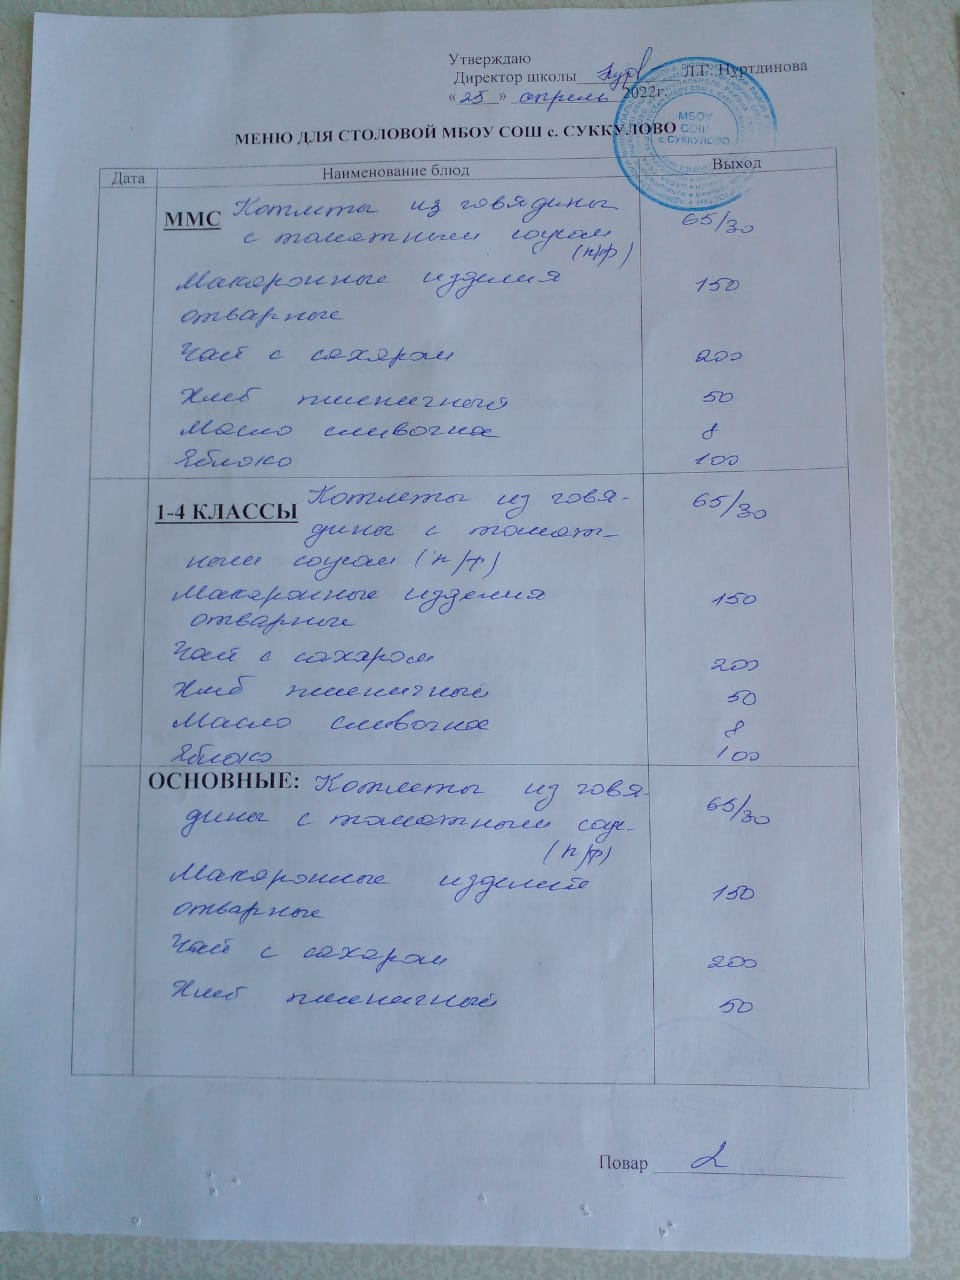 Утверждаю
Директор школы Л.Г. Нуртдинова
«25» апрель 2022г.
МБОУ
СОШ
с.СУККУЛОВО
МЕНЮ ДЛЯ СТОЛОВОЙ МБОУ СОШ с. СУККУЛОВО
Дата Наименование блюд Выход
ММС Котлеты из говядины 65/30
с томатным соусом
(п/ф)
Макаронные изделия 150
отварные
Чай с сахаром 200
Хлеб пшеничный 50
Масло сливочное 8
Яблоко 100
1-4 КЛАССЫ Котлеты из говя- 65/30
дины с томат-
ным соусом (п/ф)
Макаронные изделия 150
отварные
Чай с сахаром 200
Хлеб пшеничный 50
Масло сливочное 8
Яблоко 100
ОСНОВНЫЕ: Котлеты из говя- 65/30
дины с томатным соус-
(п/ф)
Макаронные изделия 150
отварные
Чай с сахаром 200
Хлеб пшеничный 50
Повар